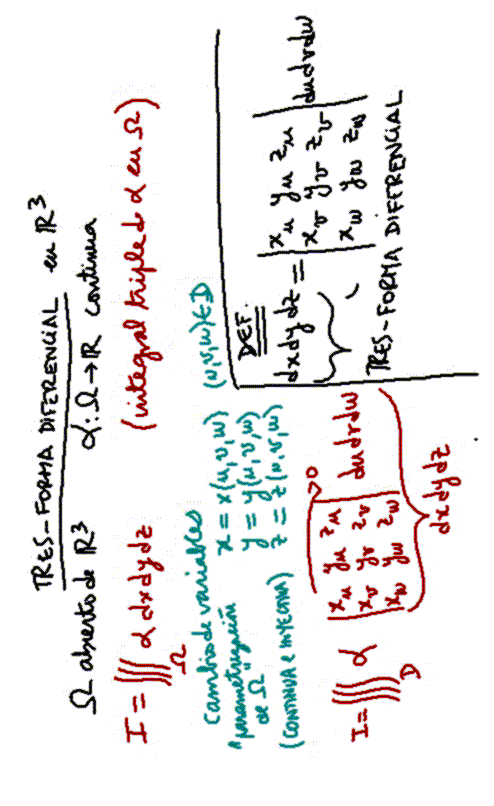 TRES-FORMA DIFERENCIAL en ℝ³
Ω abierto de ℝ³   α: Ω → ℝ continua
I = ∭_Ω α dxdydz   (integral triple d α en Ω)
Cambio de variables
"parametrización de Ω"
(CONTINUA e INYECTIVA)
x = x(u,v,w)
y = y(u,v,w)   (u,v,w) ∈ D
z = z(u,v,w)
I = ∭_D α | x_u y_u z_u | dudvdw
| x_v y_v z_v |
| x_w y_w z_w |
>0
dxdydz
DEF.
dxdydz = | x_u y_u z_u | dudvdw
| x_v y_v z_v |
| x_w y_w z_w |
TRES-FORMA DIFERENCIAL